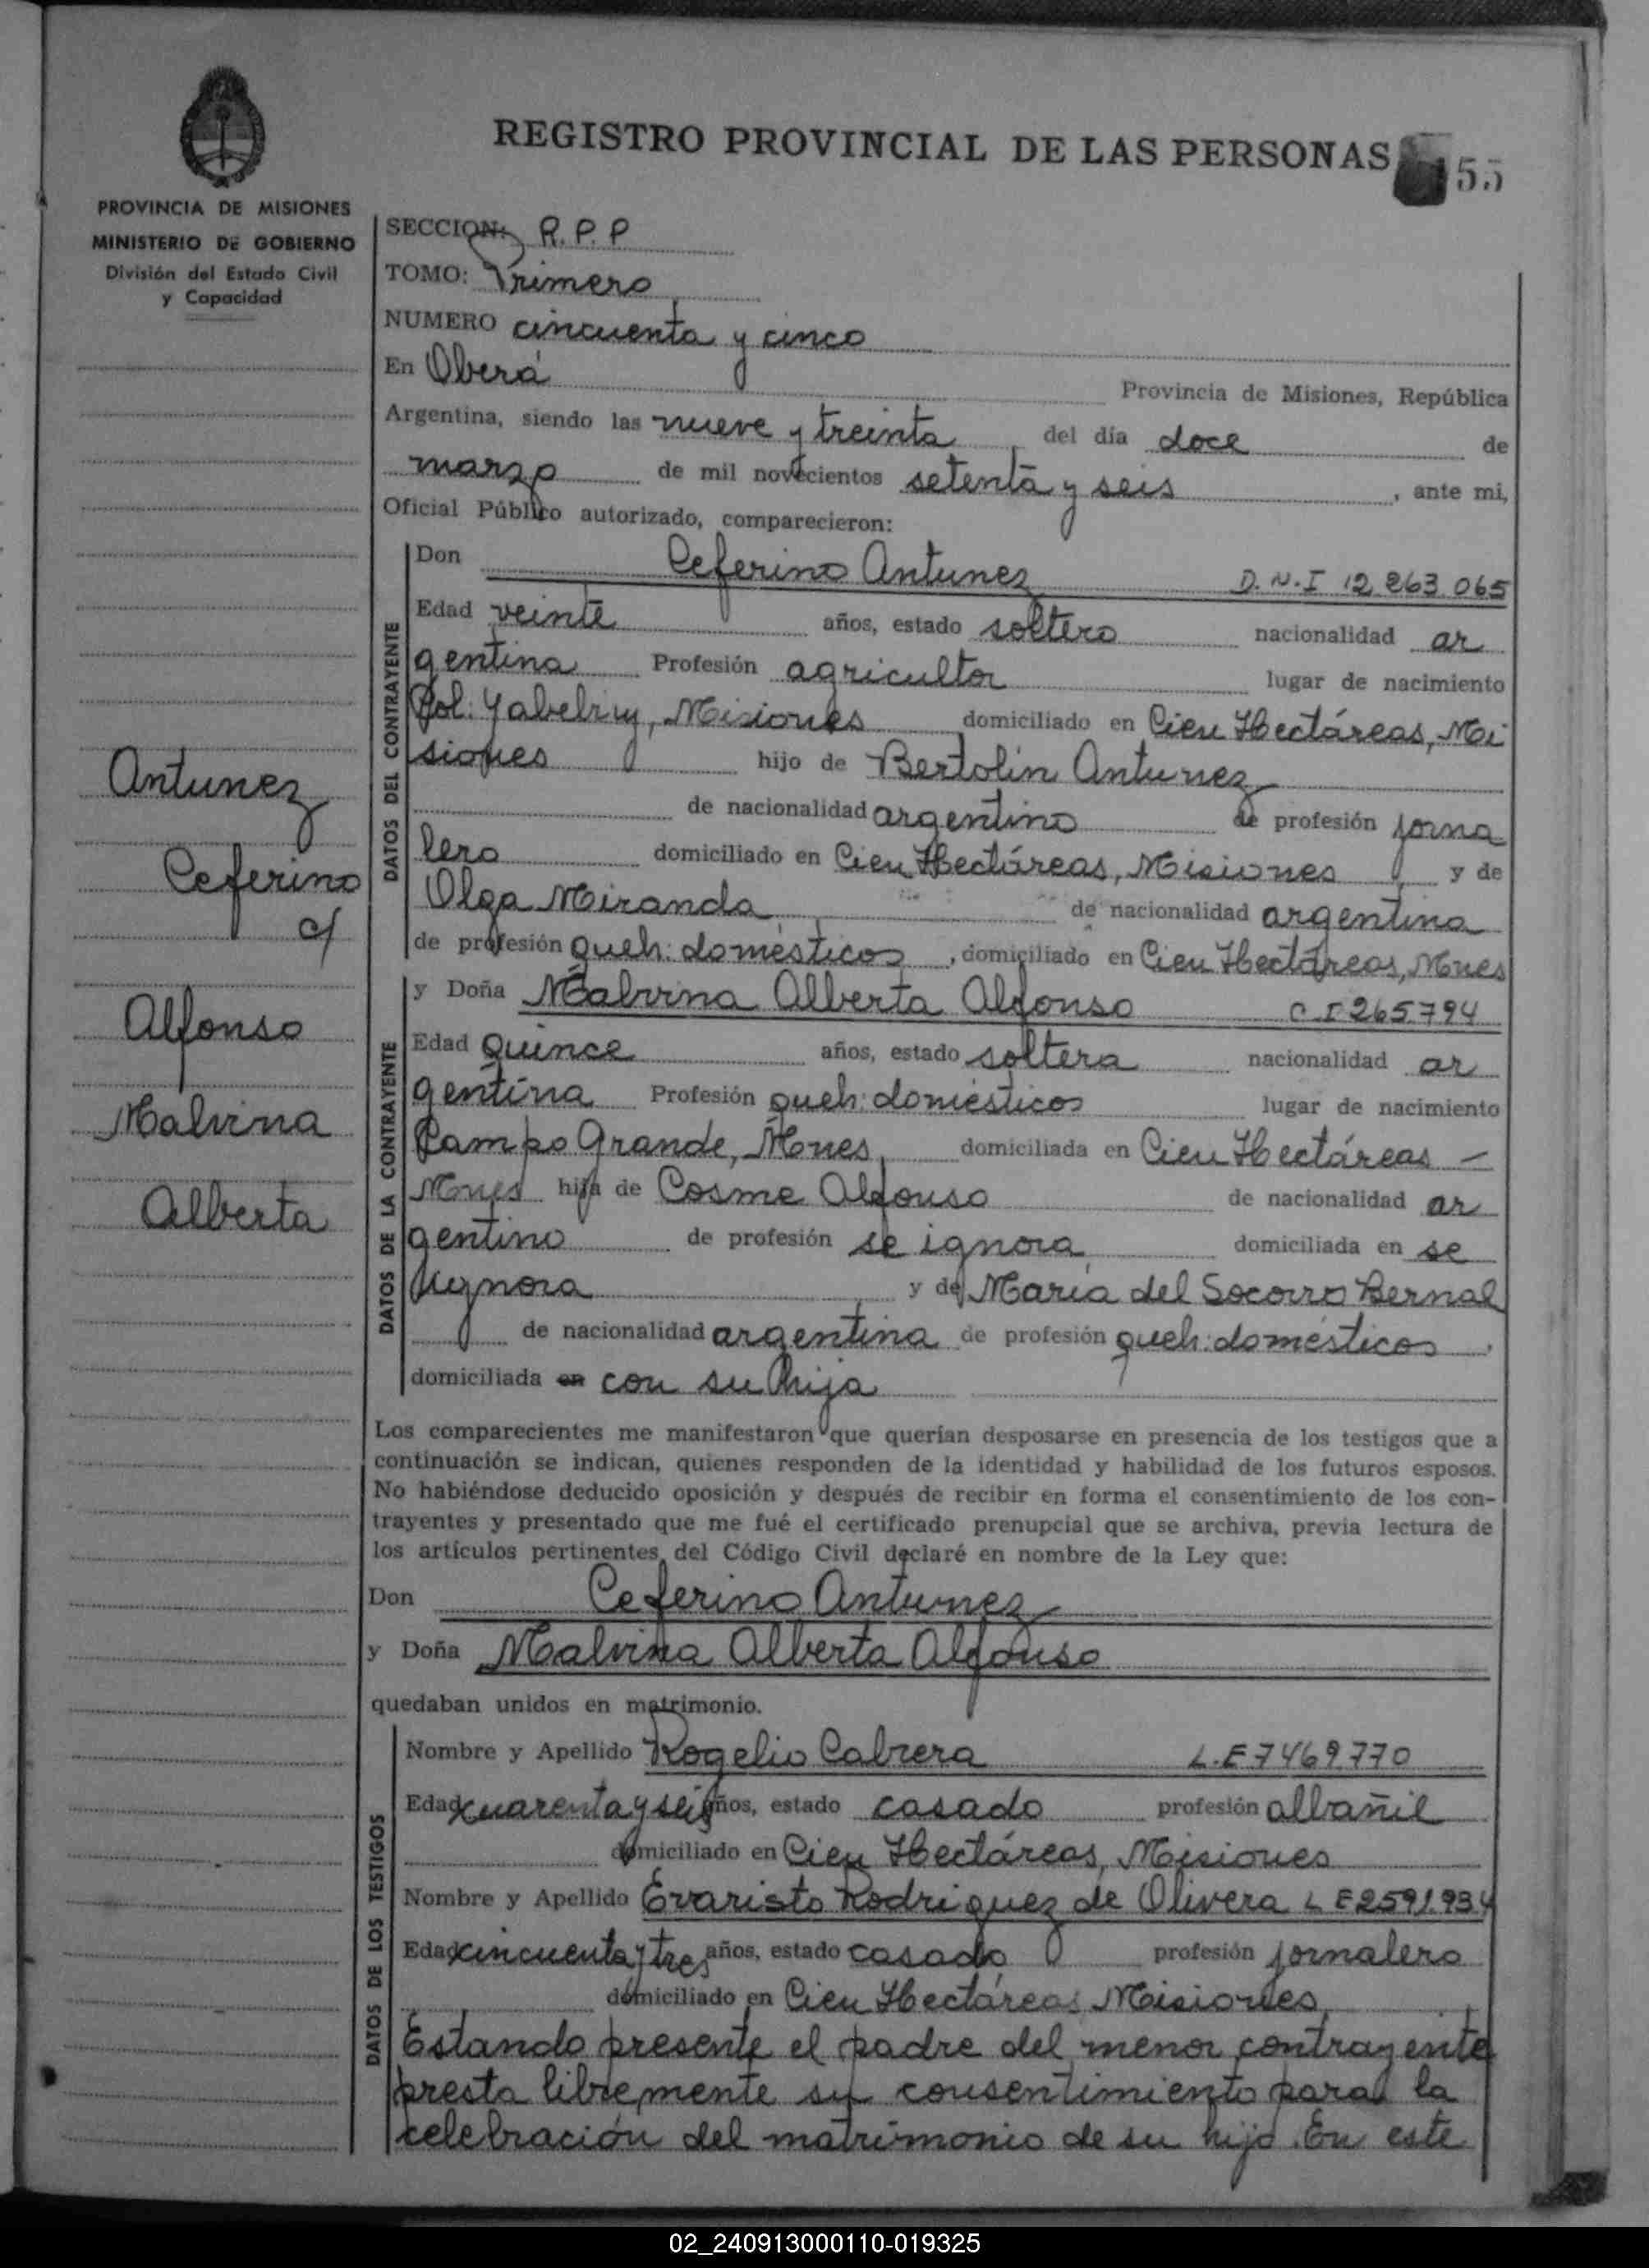 REGISTRO PROVINCIAL DE LAS PERSONAS 55
PROVINCIA DE MISIONES
MINISTERIO DE GOBIERNO
División del Estado Civil
y Capacidad
SECCION: R.P.P
TOMO: Primero
NUMERO cincuenta y cinco
En Oberá Provincia de Misiones, República
Argentina, siendo las nueve y treinta del día doce de
marzo de mil novecientos setenta y seis, ante mi,
Oficial Público autorizado, comparecieron:
DATOS DEL CONTRAYENTE
Don Ceferino Antunez D.N.I 12.263.065
Edad veinte años, estado soltero nacionalidad ar
gentina Profesión agricultor lugar de nacimiento
Col: Yabebiry, Misiones domiciliado en Cien Hectáreas, Mi
siones hijo de Bertolin Antunez
de nacionalidad argentino de profesión jorna
lero domiciliado en Cien Hectáreas, Misiones y de
Olga Miranda de nacionalidad argentina
de profesión queh: domésticos, domiciliado en Cien Hectáreas, Mnes
DATOS DE LA CONTRAYENTE
y Doña Malvina Alberta Alfonso C I 265.794
Edad quince años, estado soltera nacionalidad ar
gentina Profesión queh: domésticos lugar de nacimiento
Campo Grande, Mnes, domiciliada en Cien Hectáreas –
Mnes hija de Cosme Alfonso de nacionalidad ar
gentino de profesión se ignora domiciliada en se
ignora y de María del Socorro Bernal
de nacionalidad argentina de profesión queh: domésticos,
domiciliada en con su hija
Antunez
Ceferino
c/
Alfonso
Malvina
Alberta
Los comparecientes me manifestaron que querían desposarse en presencia de los testigos que a
continuación se indican, quienes responden de la identidad y habilidad de los futuros esposos.
No habiéndose deducido oposición y después de recibir en forma el consentimiento de los con-
trayentes y presentado que me fué el certificado prenupcial que se archiva, previa lectura de
los artículos pertinentes del Código Civil declaré en nombre de la Ley que:
Don Ceferino Antunez
y Doña Malvina Alberta Alfonso
quedaban unidos en matrimonio.
DATOS DE LOS TESTIGOS
Nombre y Apellido Rogelio Cabrera L.E 7469.770
Edad cuarenta y seis años, estado casado profesión albañil
domiciliado en Cien Hectáreas, Misiones
Nombre y Apellido Evaristo Rodriguez de Olivera L E 2591.934
Edad cincuenta y tres años, estado casado profesión jornalero
domiciliado en Cien Hectáreas, Misiones,
Estando presente el padre del menor contrayente
presta libremente su consentimiento para la
celebración del matrimonio de su hijo. En este
02_240913000110-019325